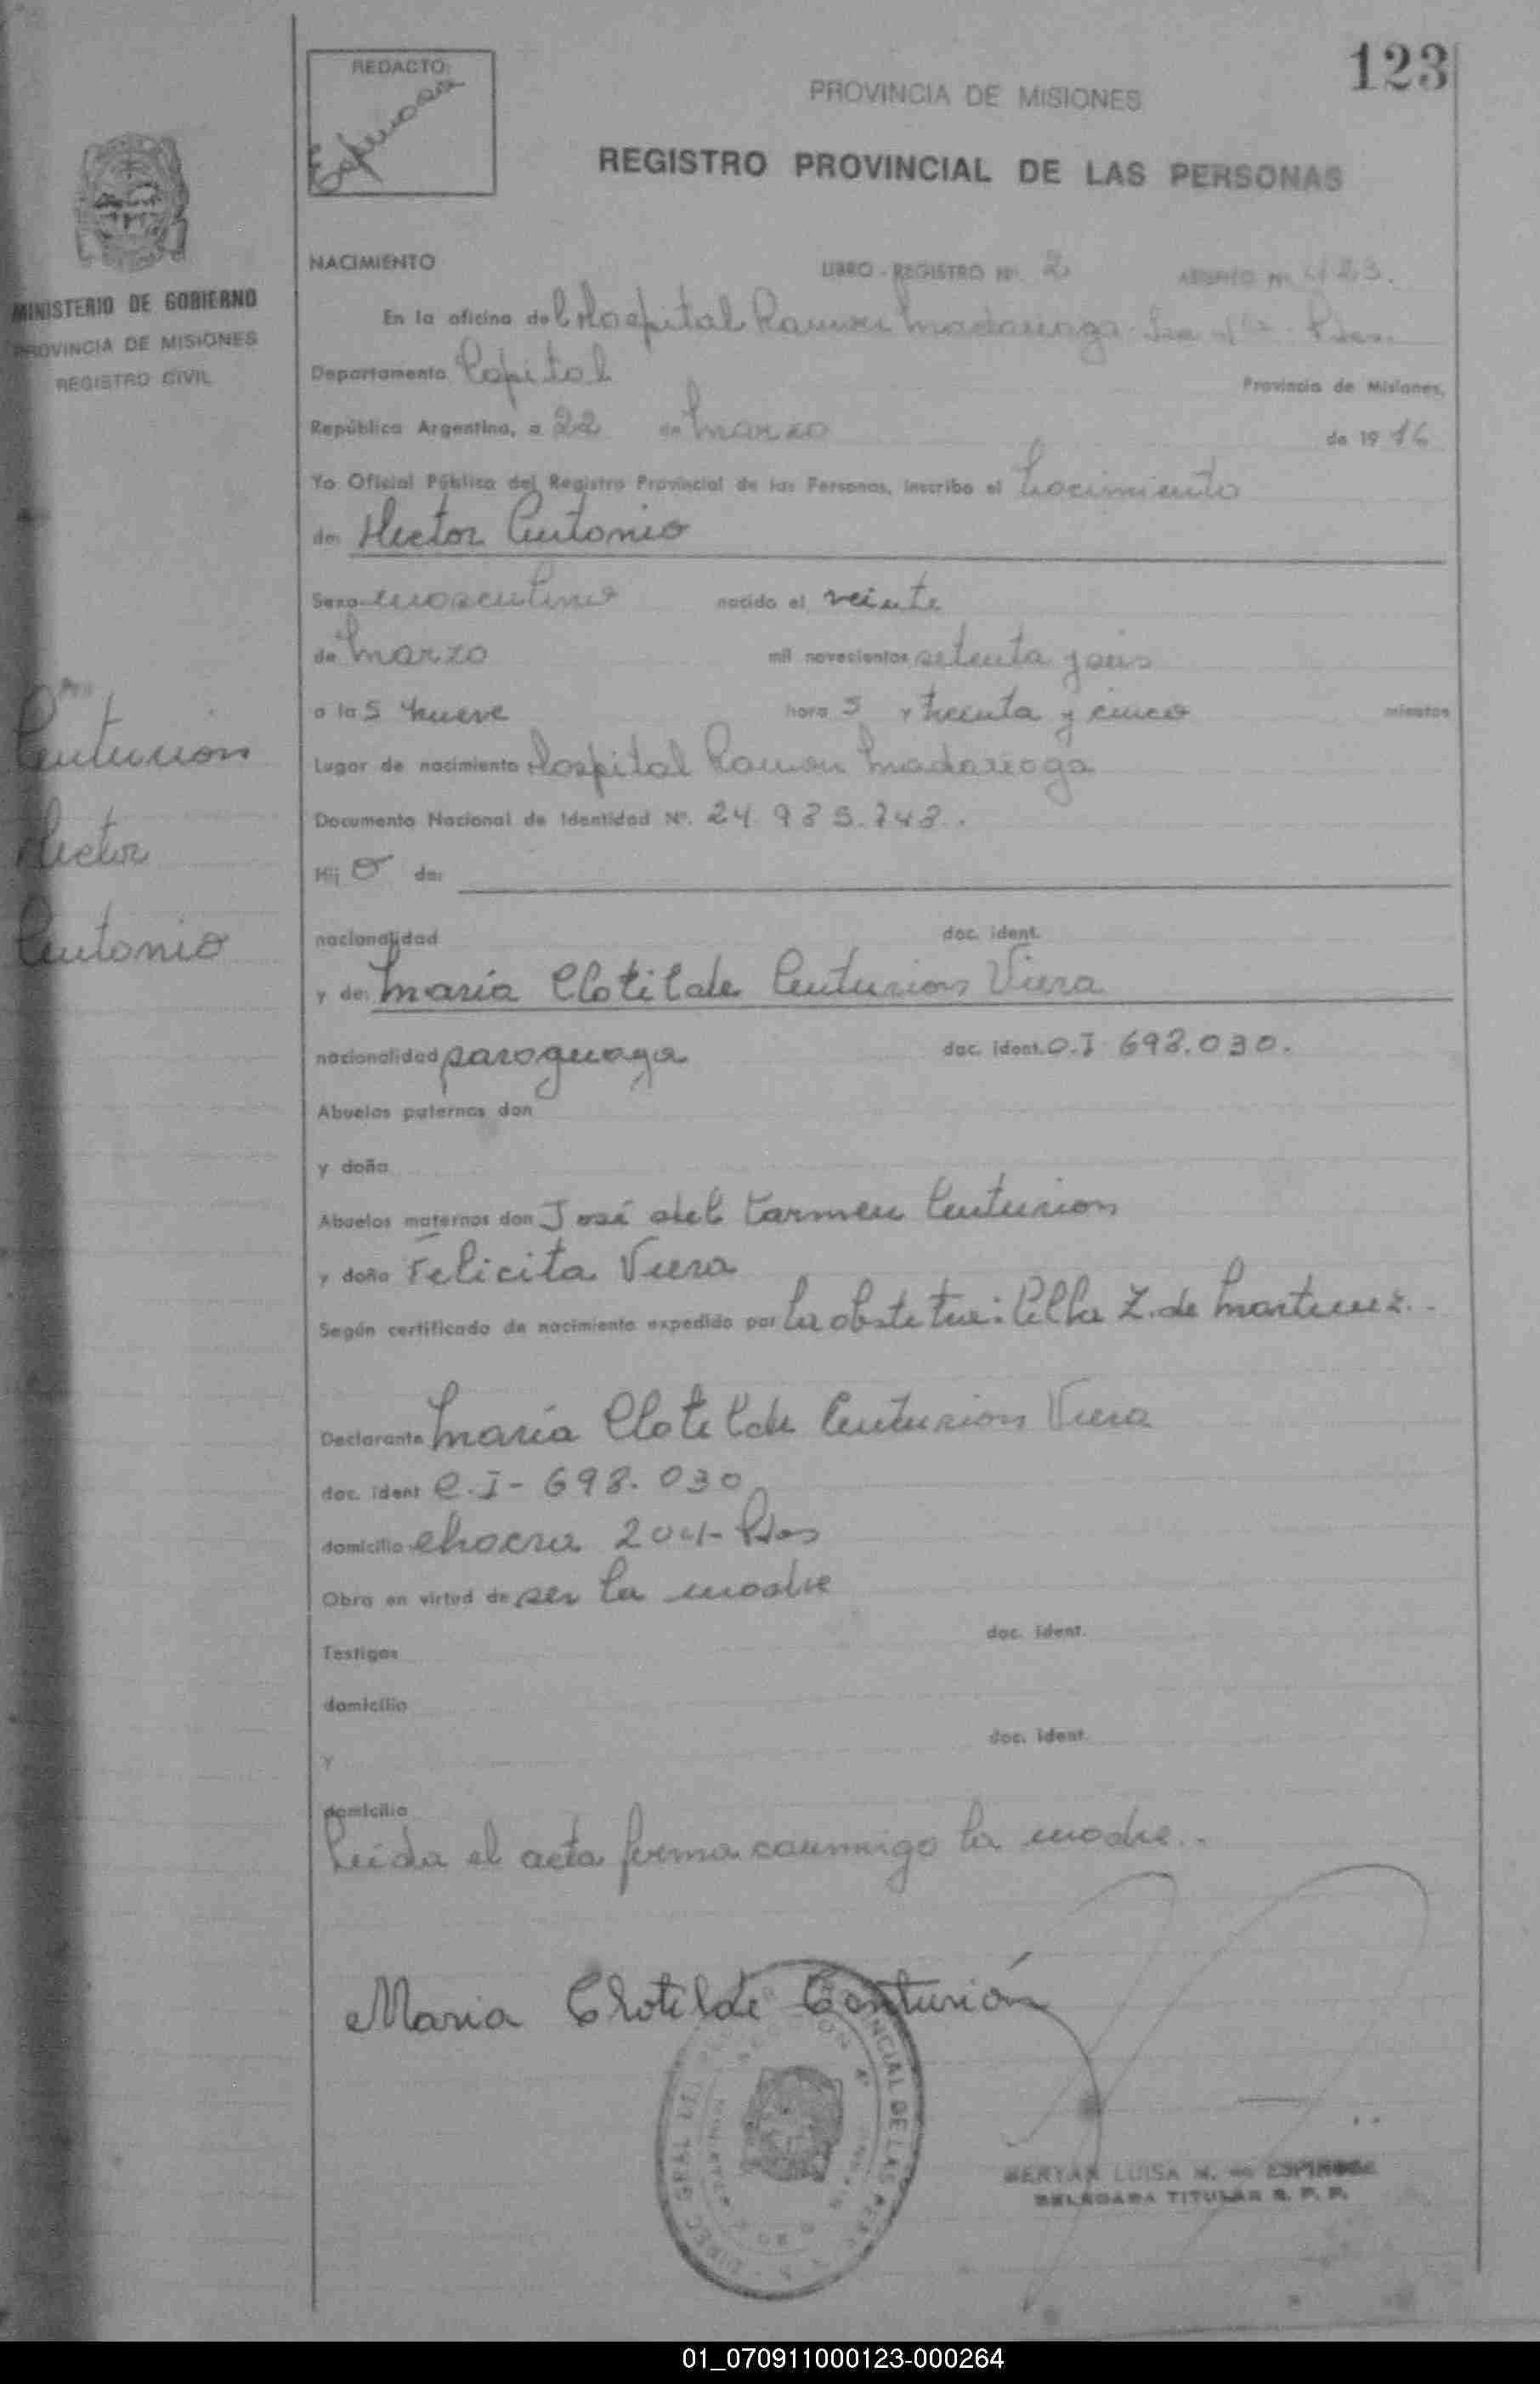 123
REDACTO:
Espinosa
PROVINCIA DE MISIONES
REGISTRO PROVINCIAL DE LAS PERSONAS
MINISTERIO DE GOBIERNO
PROVINCIA DE MISIONES
REGISTRO CIVIL
NACIMIENTO LIBRO - REGISTRO Nº 2 ASIENTO Nº 423.
En la oficina del Hospital Ramon Madariaga Pdas.
Departamento Capital Provincia de Misiones,
República Argentina, a 22 de Marzo de 19 76
Yo Oficial Público del Registro Provincial de las Personas, inscribo el Nacimiento
de: Hector Antonio
Sexo masculino nacido el veinte
de Marzo mil novecientos setenta y seis
a la s nueve hora s y treinta y cinco minutos
Lugar de nacimiento Hospital Ramon Madariaga
Documento Nacional de Identidad Nº. 24.935.743.
Hij o de:
nacionalidad doc. ident.
y de: Maria Clotilde Centurion Viera
nacionalidad paraguaya doc. ident. C.I 698.030.
Abuelos paternos don
y doña
Abuelos maternos don José del Carmen Centurion
y doña Felicita Viera
Según certificado de nacimiento expedido por la obstetri: Z. de Martinez.
Declarante María Clotilde Centurion Viera
doc. ident C.I - 698.030
domicilio chacra 204 - Pdas
Obra en virtud de ser la madre
Testigos doc. ident.
domicilio
y doc. ident.
domicilio
Leida el acta firma conmigo la madre.
Centurion
Hector
Antonio
Maria Clotilde Centurión
LUISA N. de ESPINOSA
DELEGADA TITULAR R. P. P.
01_070911000123-000264